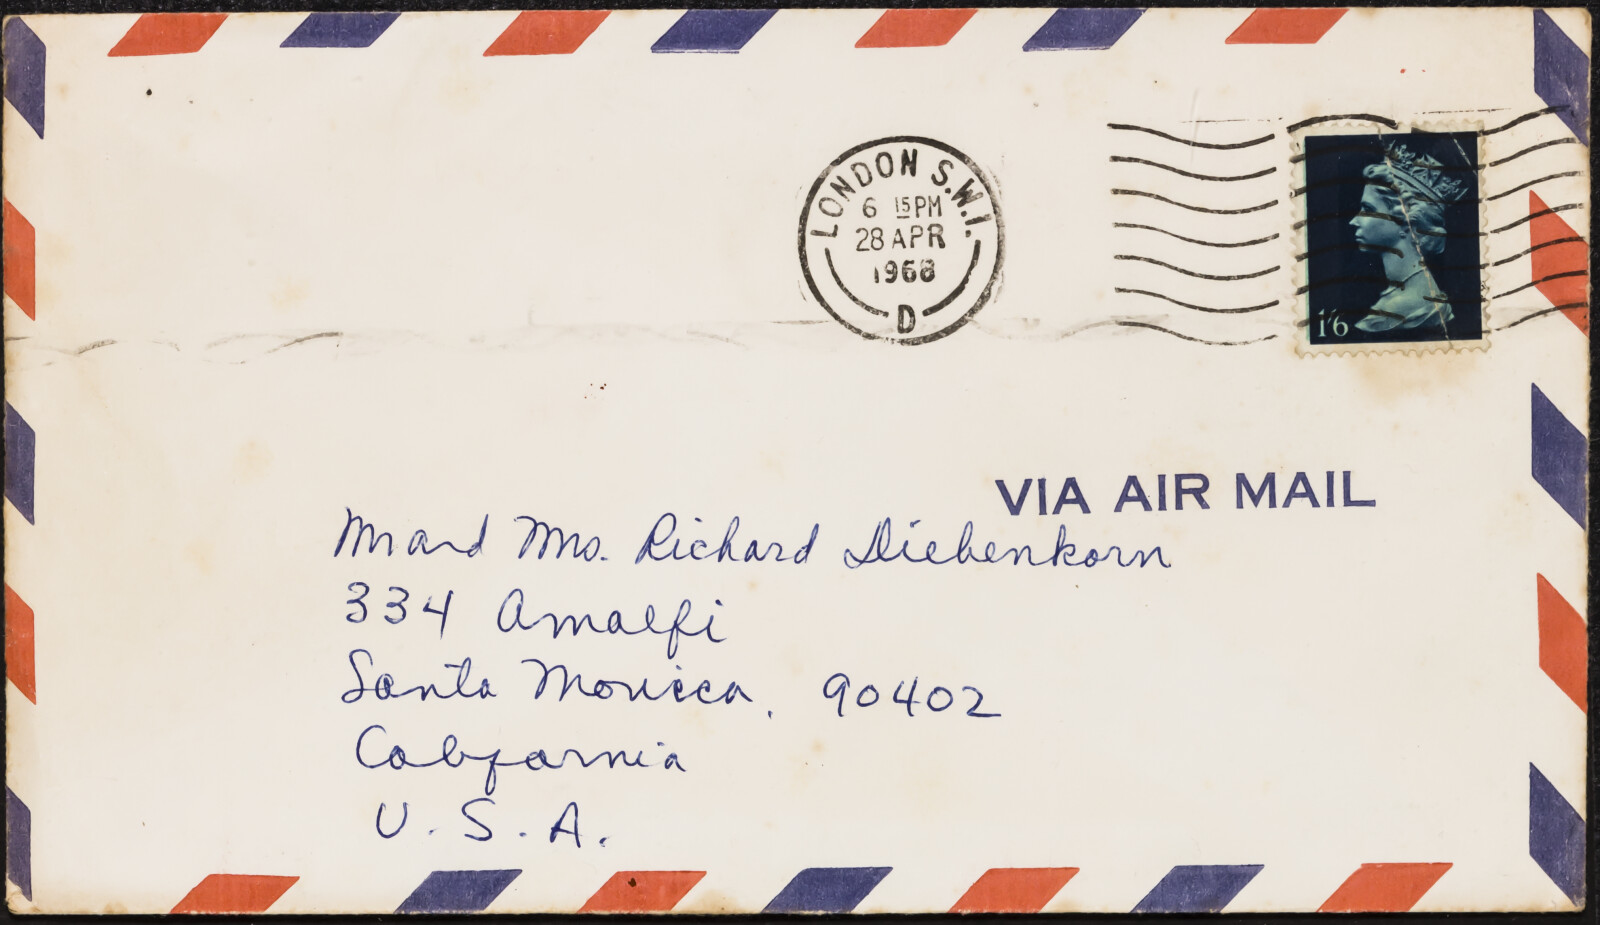 LONDON S.W.1.
6 15PM
28 APR
1968
D
1'6
VIA AIR MAIL
Mr and Mrs. Richard Diebenkorn
334 Amalfi
Santa Monica, 90402
California
U.S.A.